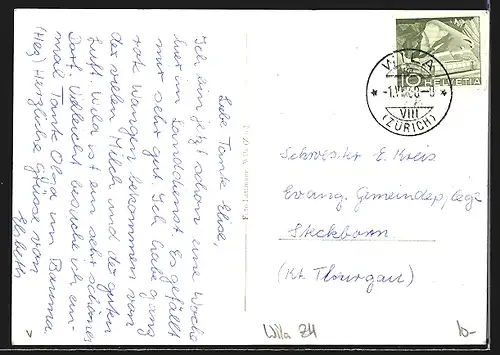 Liebe Tante Elise,
Ich bin jetzt schon eine Woche
hier im Landdienst. Es gefällt
mir sehr gut. Ich habe ganz
rote Wangen bekommen von
der vielen Milch und der guten
Luft. Wila ist ein sehr schönes
Dorf. Vielleicht besuche ich ein-
mal Tante Olga in Bauma
(Heg) Herzliche Grüsse von
Elsbeth
HELVETIA
10
WILA
VIII
(ZÜRICH)
Schwester E. Kreis
Evang. Gemeindepflege
Steckborn
(Kt. Thurgau)
Wila ZH
10-